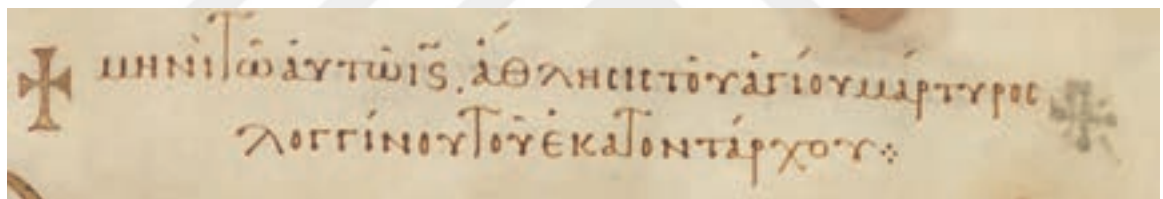 ✠ μηνὶ τῶ ἀυτῶ ις̅. ἄθλησις τοῦ ἁγίου μάρτυρος
λογγίνου τοῦ ἑκατοντάρχου⁘